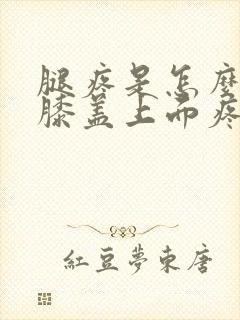 腿疼是怎麼
膝蓋上而疼
紅豆夢東唐